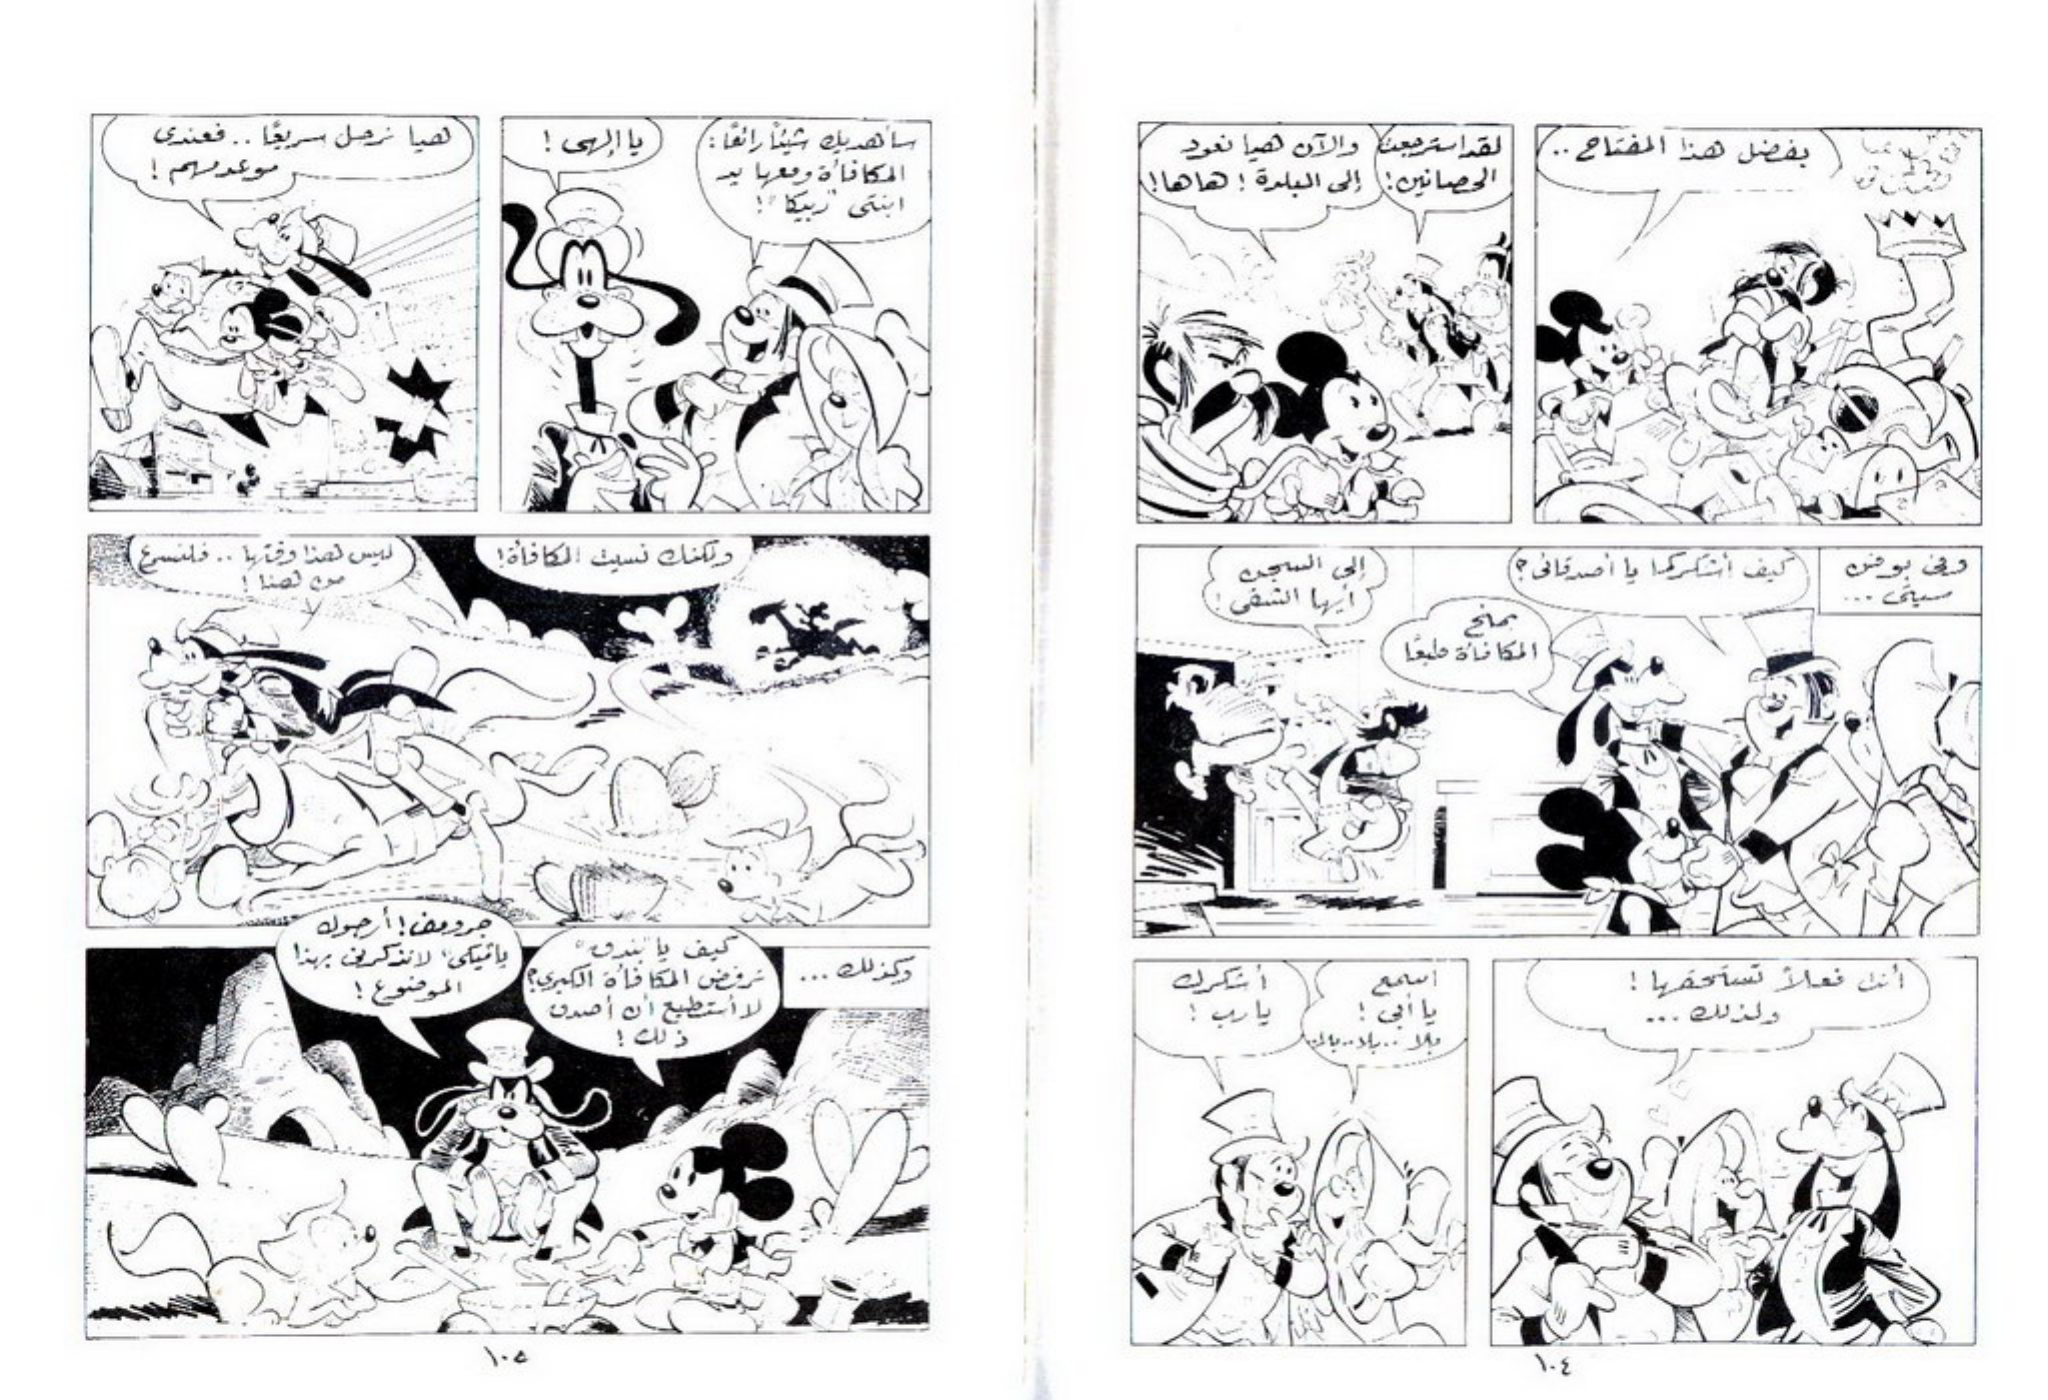 بفضل هذا المفتاح ..
لقد استرجعت
الحصانين!
والآن هيا نعود
إلى البلدة ! هاها !
وفى بوفن
سيتى ...
كيف أشكركما يا أصدقائى ؟
بمنح
المكافأة طبعًا
إلى السجن
أيها الشقى !
أنت فعلاً تستحقها !
ولذلك ...
اسمع
يا أبى !
بلا .. بلا .. بلا..
أشكرك
يارب !
١٠٤
سأهديك شيئًا رائعًا :
المكافأة ومعها يد
ابنتى "ربيكا" !
يا إلهى !
هيا نرحل سريعًا .. فعندى
موعد مهم !
ولكنك نسيت المكافأة !
ليس هذا وقتها .. فلنسرع
من هنا !
وكذلك ...
كيف يا "بندق"
ترفض المكافأة الكبيرى ؟
لا أستطيع أن أصدق
ذلك !
جرومف ! أرجوك
يا "ميكى" لا تذكرنى بهذا
الموضوع !
١٠٥